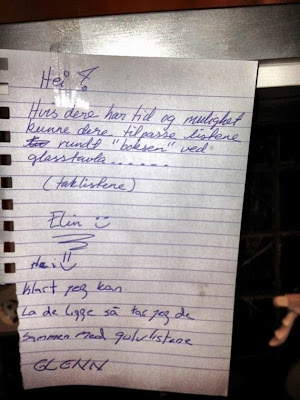 Hei !
Hvis dere har tid og mulighet
kunne dere tilpasse listene
rundt "boksen" ved
glasstavla......
(taklistene)
Elin
Hei
klart jeg kan
La de ligge så tar jeg de
sammen med gulvlistene
GLENN